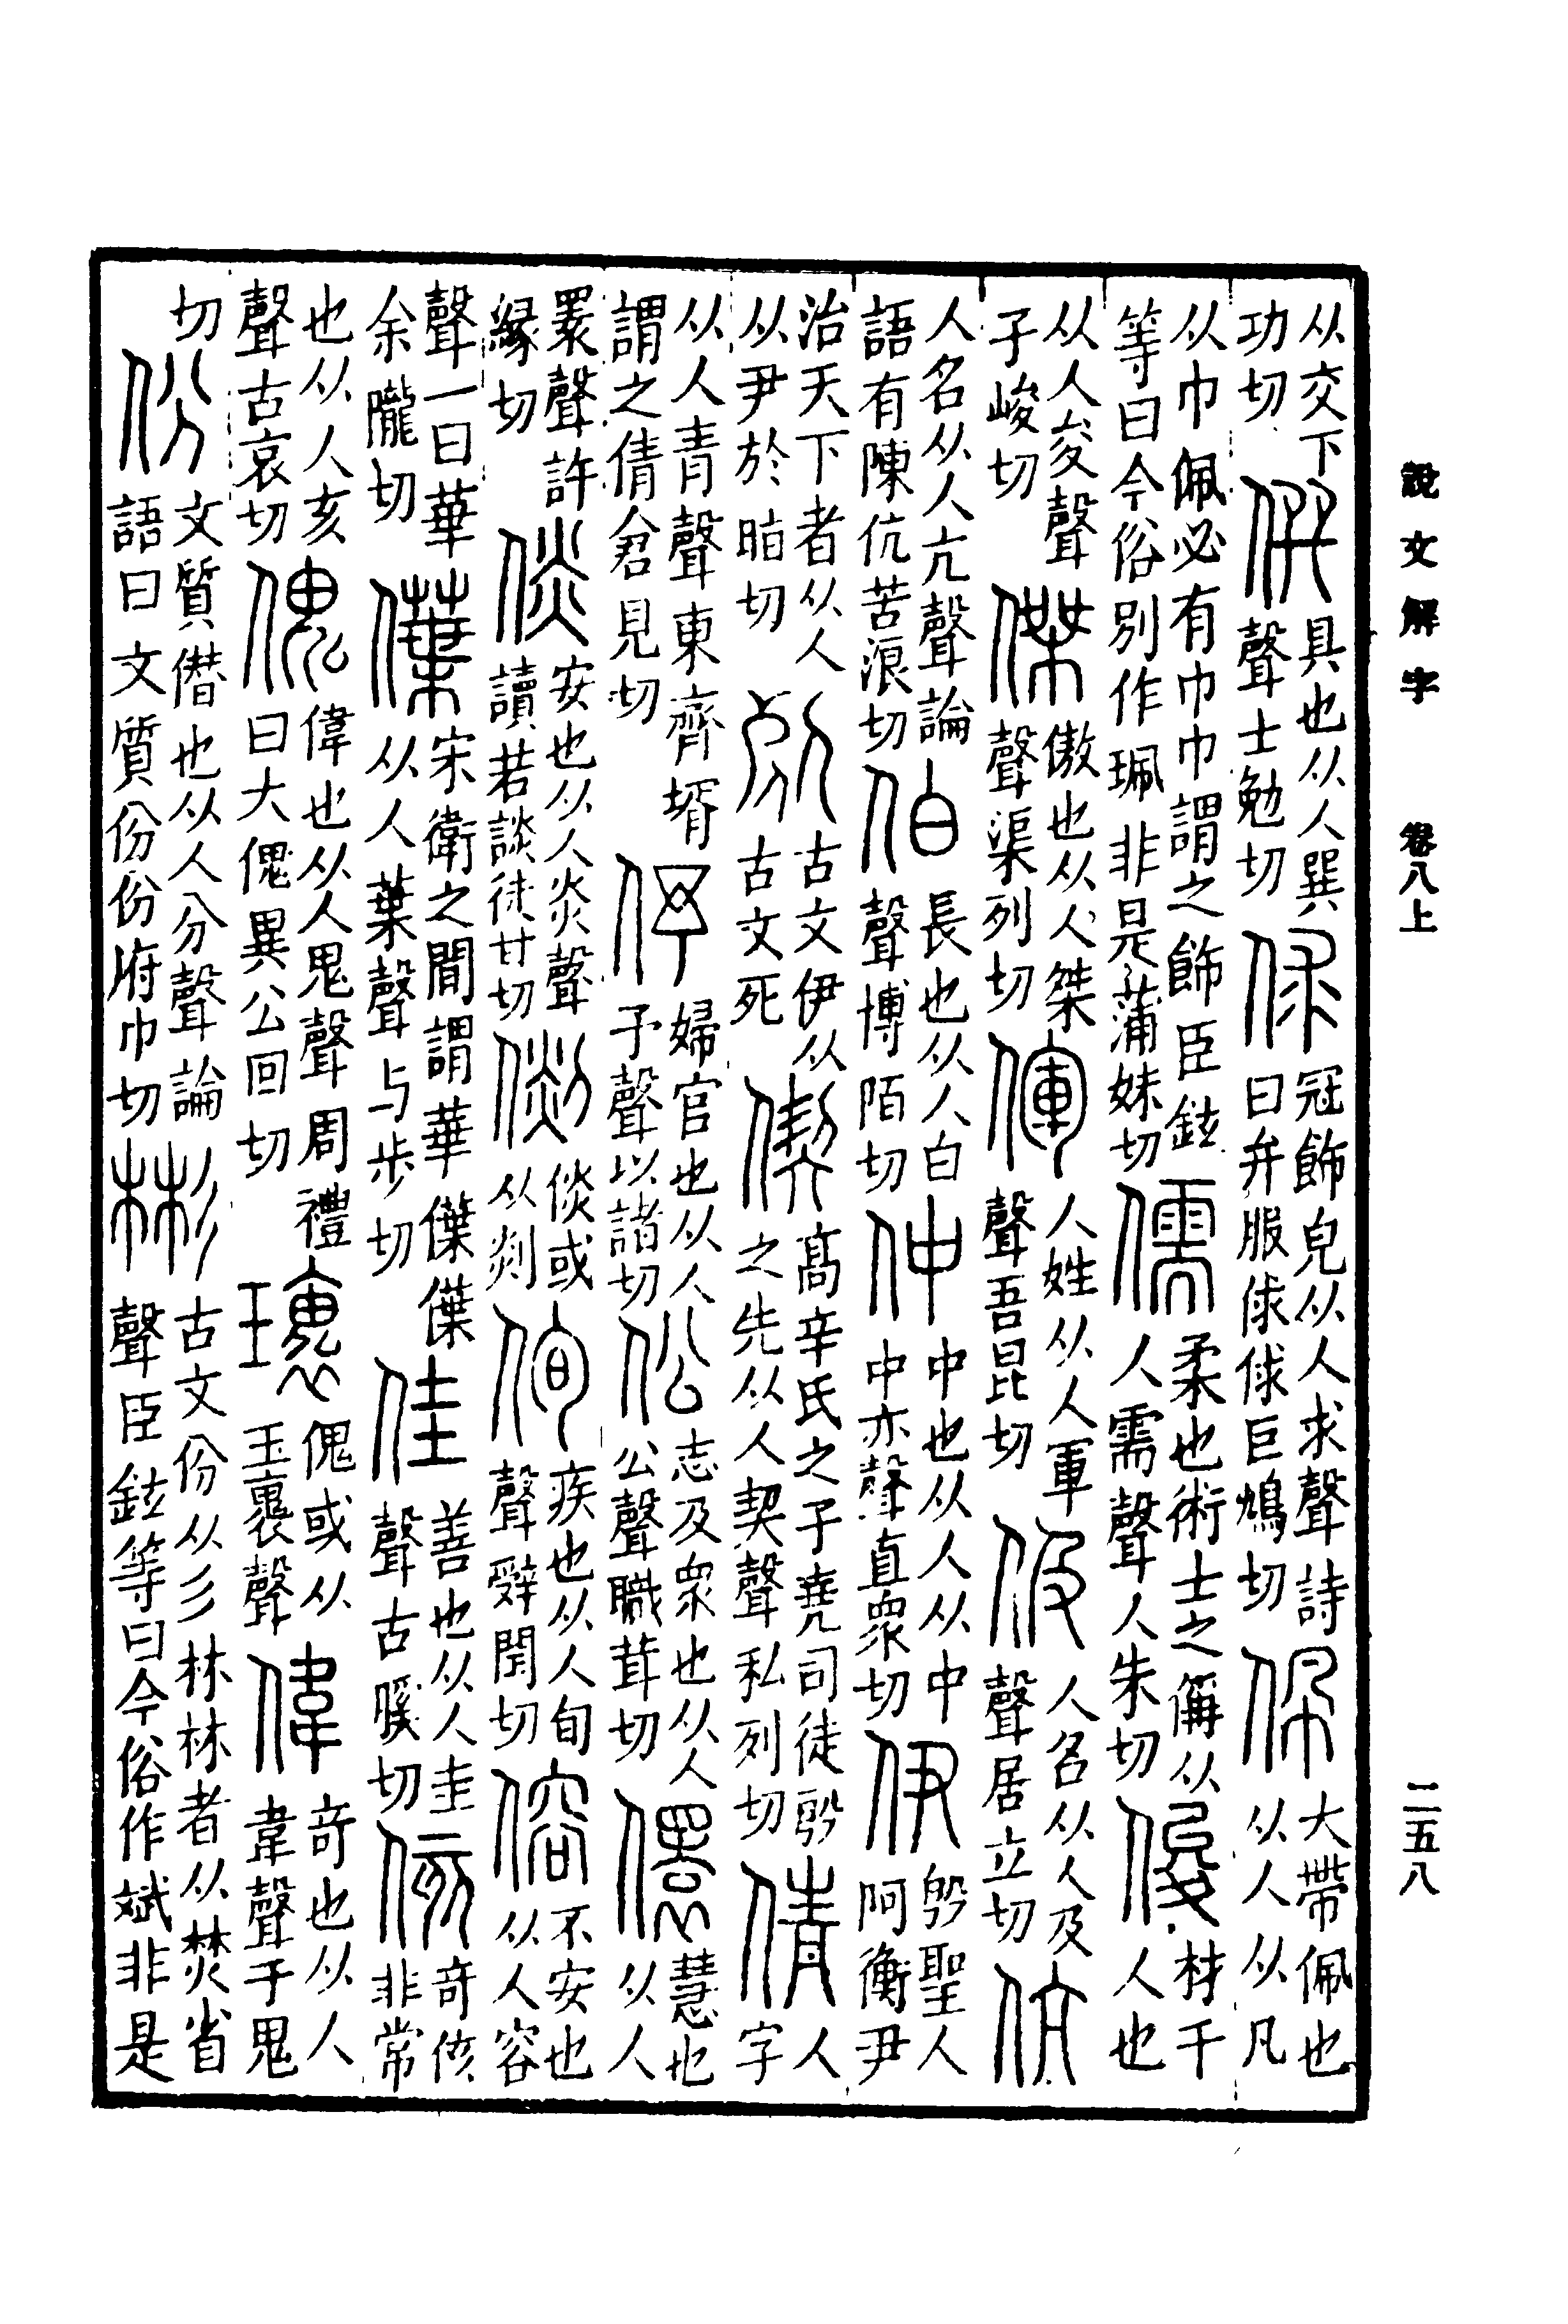 說文解字 卷八上 二五八
从交下功切僎具也从人巽聲士勉切俅冠飾皃从人求聲詩曰弁服俅俅巨鳩切佩大帶佩也从人从凡
从巾佩必有巾巾謂之飾臣鉉等曰今俗別作珮非是蒲妹切儒柔也術士之偁从人需聲人朱切俊材千人也
从人夋聲子峻切傑傲也从人桀聲渠列切㑮人姓从人軍聲吾昆切伋人名从人及聲居立切伉
人名从人亢聲論語有陳伉苦浪切伯長也从人白聲博陌切仲中也从人从中中亦聲直眾切伊殷聖人阿衡尹
治天下者从人从尹於脂切古文伊从古文死偰高辛氏之子堯司徒殷之先从人契聲私列切倩人字
从人青聲東齊壻謂之倩倉見切伃婦官也从人予聲以諸切伀志及眾也从人公聲職茸切儇慧也从人
睘聲許緣切倓安也从人炎聲讀若談徒甘切倓或从剡侚疾也从人旬聲辭閏切傛不安也从人容
聲一曰華余隴切僷宋衛之閒謂華僷僷从人葉聲与步切佳善也从人圭聲古膎切侅奇侅非常
也从人亥聲古哀切傀偉也从人鬼聲周禮曰大傀異公回切瓌傀或从玉褱聲偉奇也从人韋聲于鬼
切份文質僣也从人分聲論語曰文質份份府巾切彬古文份从彡林林者从焚省聲臣鉉等曰今俗作斌非是